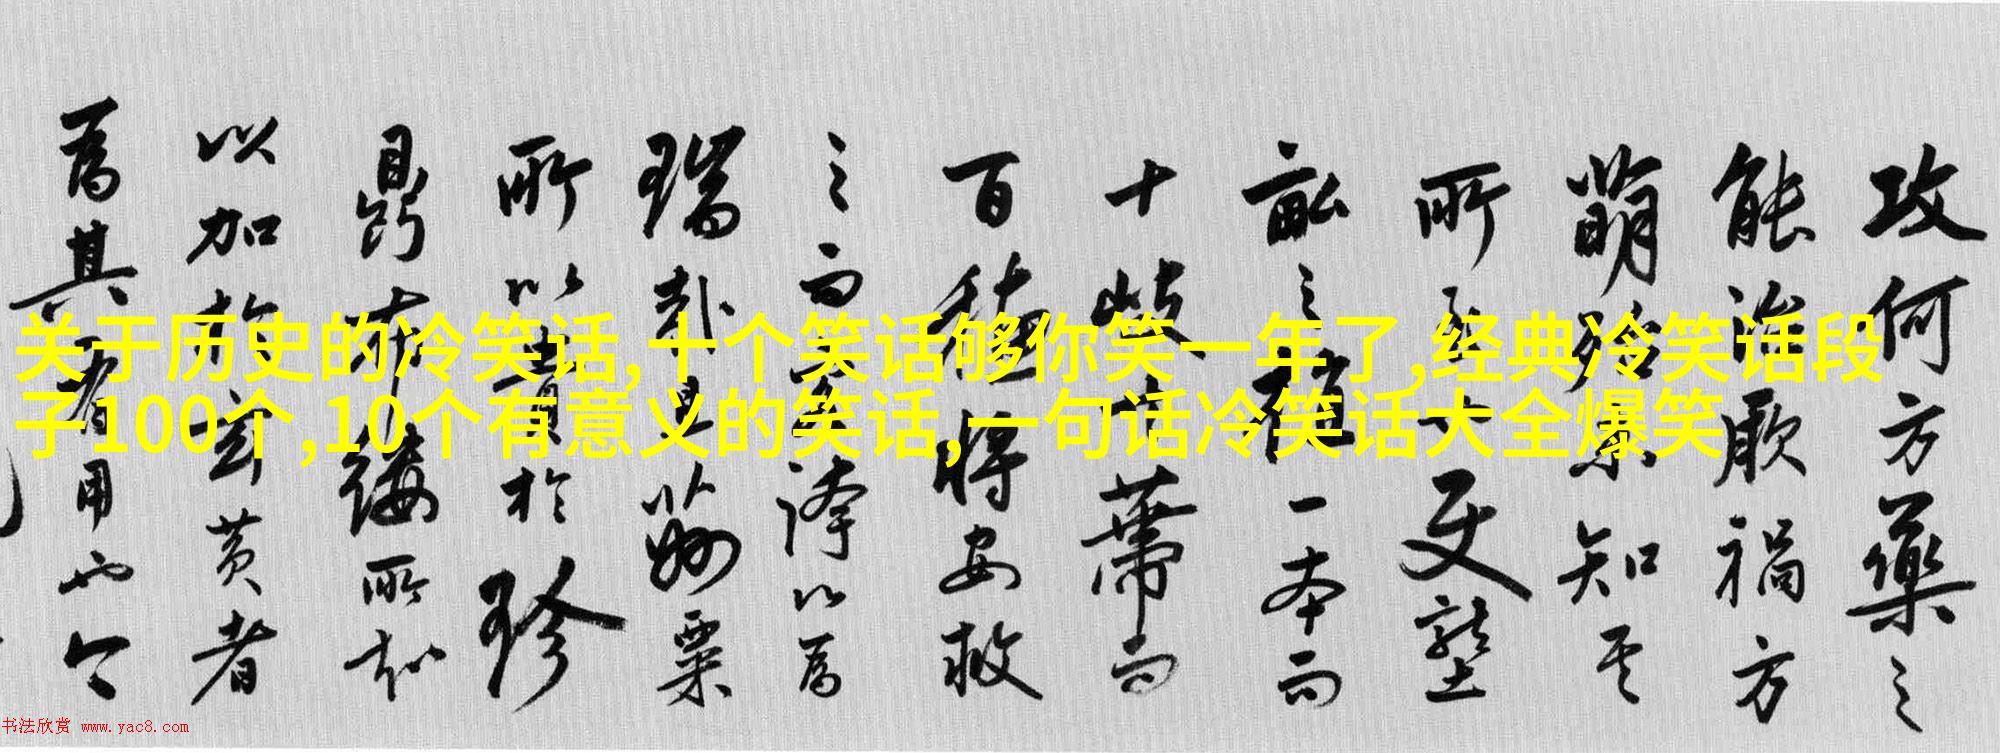 关于历史的冷笑话,十个笑话够你笑一年了,经典冷笑话段
子100个,10个有意义的笑话,一句话冷笑话大全爆笑
攻何方藥之
能治歌禍方
萌知其
所更壟
畝之一本而
十岐蒂而
百穗將安救
之而誇以為
瑞卦粟
所以貴於珍
鼎所
以加於玄黄者
為其有用也今
书法欣赏 www.yac8.com